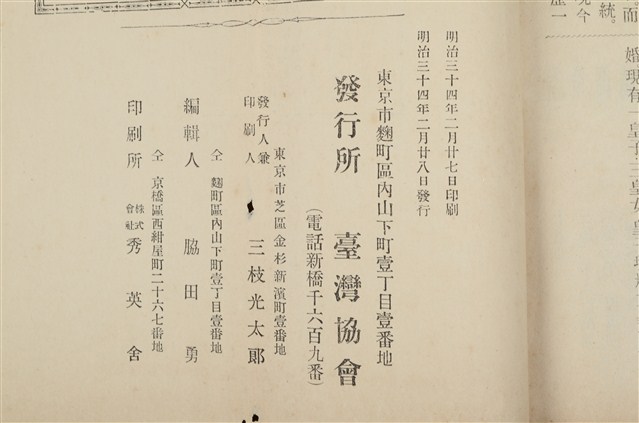 而
統。
現今
歷一
婚、現有一皇子三皇女、皇
明治三十四年二月廿七日印刷
明治三十四年二月廿八日發行
東京市麴町區內山下町壹丁目壹番地
發行所 臺灣協會
（電話新橋千六百九番）
東京市芝區金杉新濱町壹番地
發行人兼
印刷人 三枝光太郞
仝 麴町區內山下町壹丁目壹番地
編輯人 脇田勇
仝 京橋區西紺屋町二十六七番地
印刷所 株式會社 秀英舍